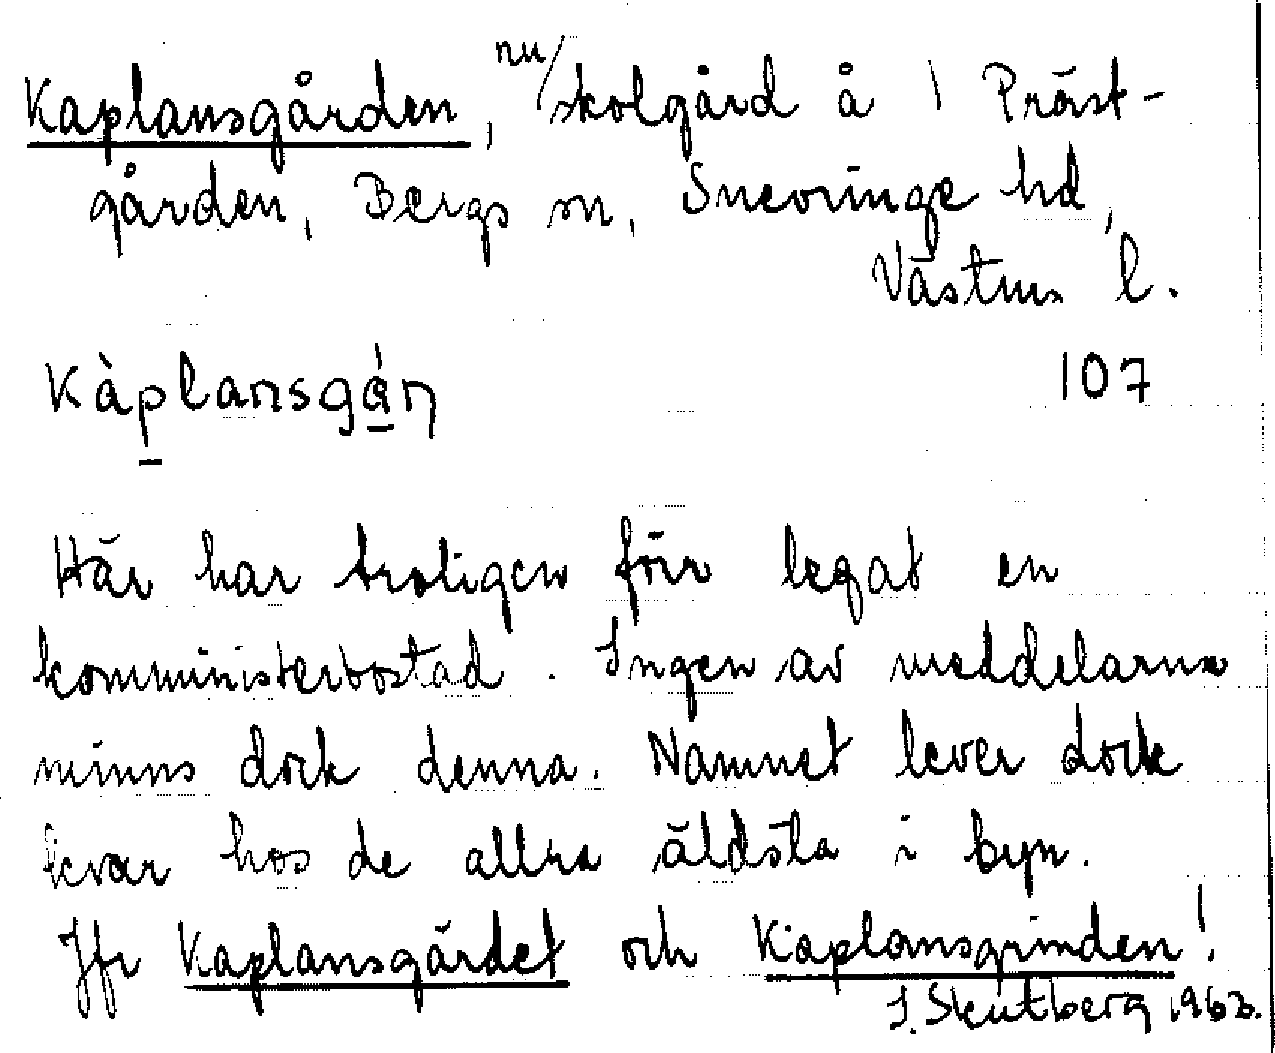 Kaplansgården, nu/skolgård å 1 Präst-
gården, Bergs sn, Snevringe hd,
Västms l.
Kàplansgá̱ɳ 107
Här har troligen förr legat en
komministerbostad. Ingen av meddelarna
minns dock denna. Namnet lever dock
kvar hos de allra äldsta i byn.
Jfr Kaplansgärdet och Kaplansgrinden!
J. Skutberg 1963.